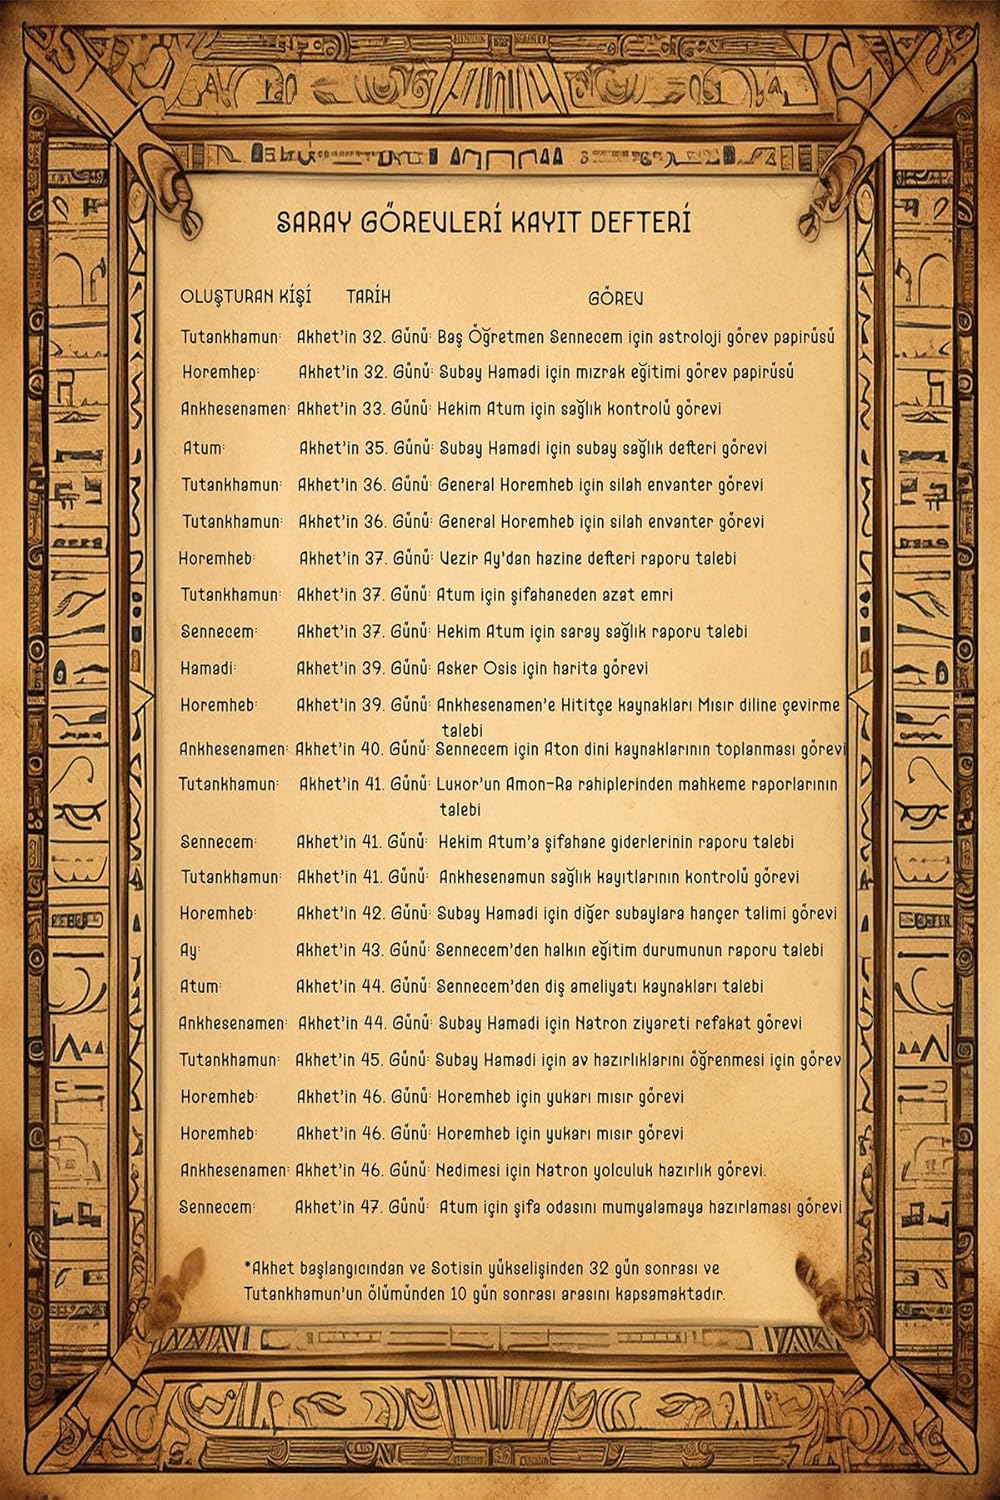 SARAY GÖREVLERİ KAYIT DEFTERİ
OLUŞTURAN KİŞİ TARİH GÖREV
Tutankhamun: Akhet'in 32. Günü: Baş Öğretmen Sennecem için astroloji görev papirüsü
Horemhep: Akhet'in 32. Günü: Subay Hamadi için mızrak eğitimi görev papirüsü
Ankhesenamen: Akhet'in 33. Günü: Hekim Atum için sağlık kontrolü görevi
Atum: Akhet'in 35. Günü: Subay Hamadi için subay sağlık defteri görevi
Tutankhamun: Akhet'in 36. Günü: General Horemheb için silah envanter görevi
Tutankhamun: Akhet'in 36. Günü: General Horemheb için silah envanter görevi
Horemheb: Akhet'in 37. Günü: Vezir Ay'dan hazine defteri raporu talebi
Tutankhamun: Akhet'in 37. Günü: Atum için şifahaneden azat emri
Sennecem: Akhet'in 37. Günü: Hekim Atum için saray sağlık raporu talebi
Hamadi: Akhet'in 39. Günü: Asker Osis için harita görevi
Horemheb: Akhet'in 39. Günü: Ankhesenamen'e Hititçe kaynakları Mısır diline çevirme
talebi
Ankhesenamen: Akhet'in 40. Günü: Sennecem için Aton dini kaynaklarının toplanması görevi
Tutankhamun: Akhet'in 41. Günü: Luxor'un Amon-Ra rahiplerinden mahkeme raporlarının
talebi
Sennecem: Akhet'in 41. Günü: Hekim Atum'a şifahane giderlerinin raporu talebi
Tutankhamun: Akhet'in 41. Günü: Ankhesenamun sağlık kayıtlarının kontrolü görevi
Horemheb: Akhet'in 42. Günü: Subay Hamadi için diğer subaylara hançer talimi görevi
Ay: Akhet'in 43. Günü: Sennecem'den halkın eğitim durumunun raporu talebi
Atum: Akhet'in 44. Günü: Sennecem'den diş ameliyatı kaynakları talebi
Ankhesenamen: Akhet'in 44. Günü: Subay Hamadi için Natron ziyareti refakat görevi
Tutankhamun: Akhet'in 45. Günü: Subay Hamadi için av hazırlıklarını öğrenmesi için görev
Horemheb: Akhet'in 46. Günü: Horemheb için yukarı mısır görevi
Horemheb: Akhet'in 46. Günü: Horemheb için yukarı mısır görevi
Ankhesenamen: Akhet'in 46. Günü: Nedimesi için Natron yolculuk hazırlık görevi.
Sennecem: Akhet'in 47. Günü: Atum için şifa odasını mumyalamaya hazırlaması görevi
*Akhet başlangıcından ve Sotisin yükselişinden 32 gün sonrası ve
Tutankhamun'un ölümünden 10 gün sonrası arasını kapsamaktadır.